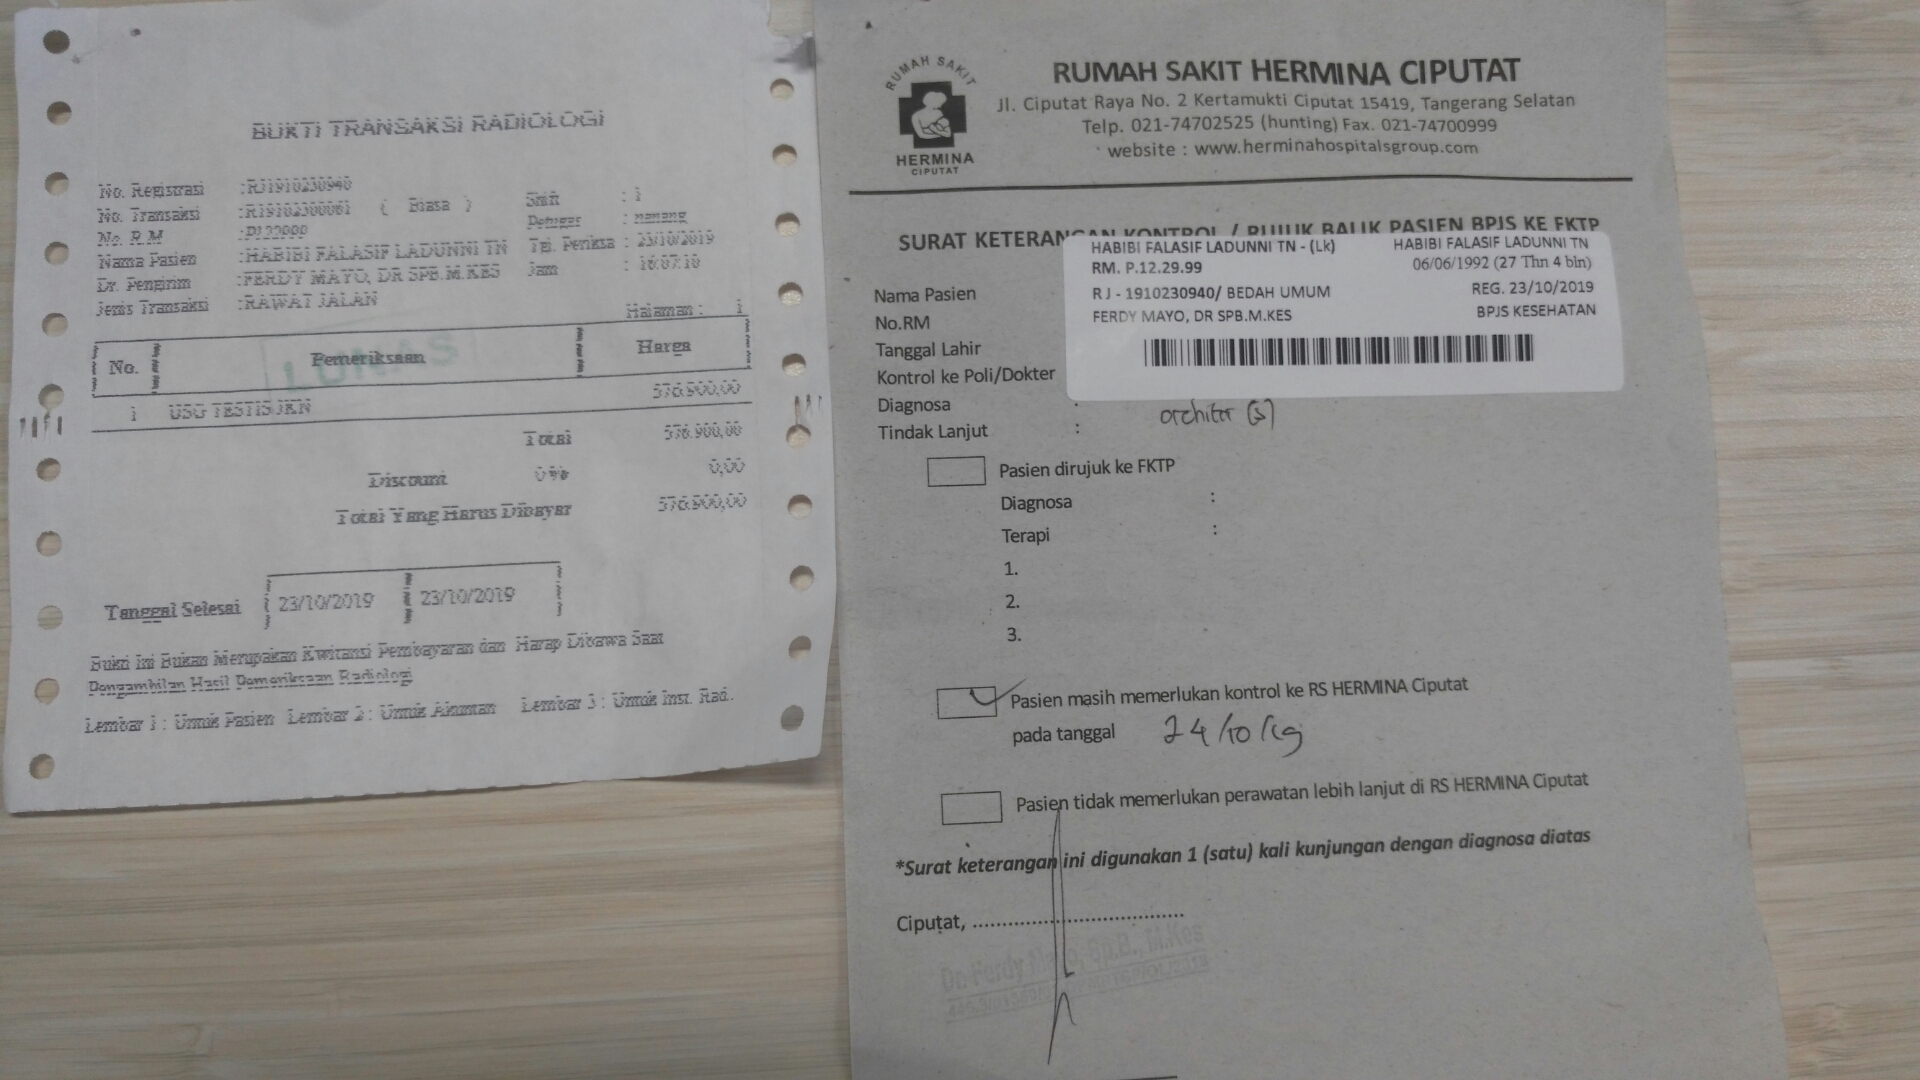 BUKTI TRANSAKSI RADIOLOGI
No. Registrasi :RJ1910230940
No. Transaksi :R19102300061 ( Biasa ) Shift : 1
No. R.M :P122999 Petugas : nanang
Nama Pasien :HABIBI FALASIF LADUNNI TN Tgl. Periksa : 23/10/2019
Dr. Pengirim :FERDY MAYO, DR SPB.M.KES Jam : 16:07:10
Jenis Transaksi :RAWAT JALAN
Halaman : 1
No. Pemeriksaan Harga
LUNAS
1 USG TESTIS JKN 576.900,00
Total 576.900,00
Discount 0 % 0,00
Total Yang Harus Dibayar 576.900,00
Tanggal Selesai 23/10/2019 23/10/2019
Bukti Ini Bukan Merupakan Kwitansi Pembayaran dan Harap Dibawa Saat
Pengambilan Hasil Pemeriksaan Radiologi
Lembar 1 : Untuk Pasien Lembar 2 : Untuk Akuntan Lembar 3 : Untuk Inst. Rad..
RUMAH SAKIT
HERMINA
CIPUTAT
RUMAH SAKIT HERMINA CIPUTAT
Jl. Ciputat Raya No. 2 Kertamukti Ciputat 15419, Tangerang Selatan
Telp. 021-74702525 (hunting) Fax. 021-74700999
website : www.herminahospitalsgroup.com
SURAT KETERANGAN KONTROL / RUJUK BALIK PASIEN BPJS KE FKTP
HABIBI FALASIF LADUNNI TN - (Lk) HABIBI FALASIF LADUNNI TN
RM. P.12.29.99 06/06/1992 (27 Thn 4 bln)
RJ - 1910230940/ BEDAH UMUM REG. 23/10/2019
FERDY MAYO, DR SPB.M.KES BPJS KESEHATAN
Nama Pasien
No.RM
Tanggal Lahir
Kontrol ke Poli/Dokter
Diagnosa : orchitis (s)
Tindak Lanjut :
Pasien dirujuk ke FKTP
Diagnosa :
Terapi :
1.
2.
3.
Pasien masih memerlukan kontrol ke RS HERMINA Ciputat
pada tanggal 24/10/19
Pasien tidak memerlukan perawatan lebih lanjut di RS HERMINA Ciputat
*Surat keterangan ini digunakan 1 (satu) kali kunjungan dengan diagnosa diatas
Ciputat, ...................................
Dr. Ferdy Mayo, Sp.B., M.Kes